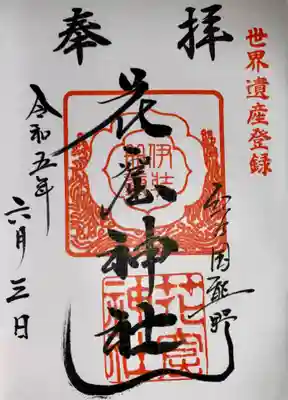 世界遺産登録
奉拝
国熊野
花窟神社
花窟神社
令和五年
六月三日